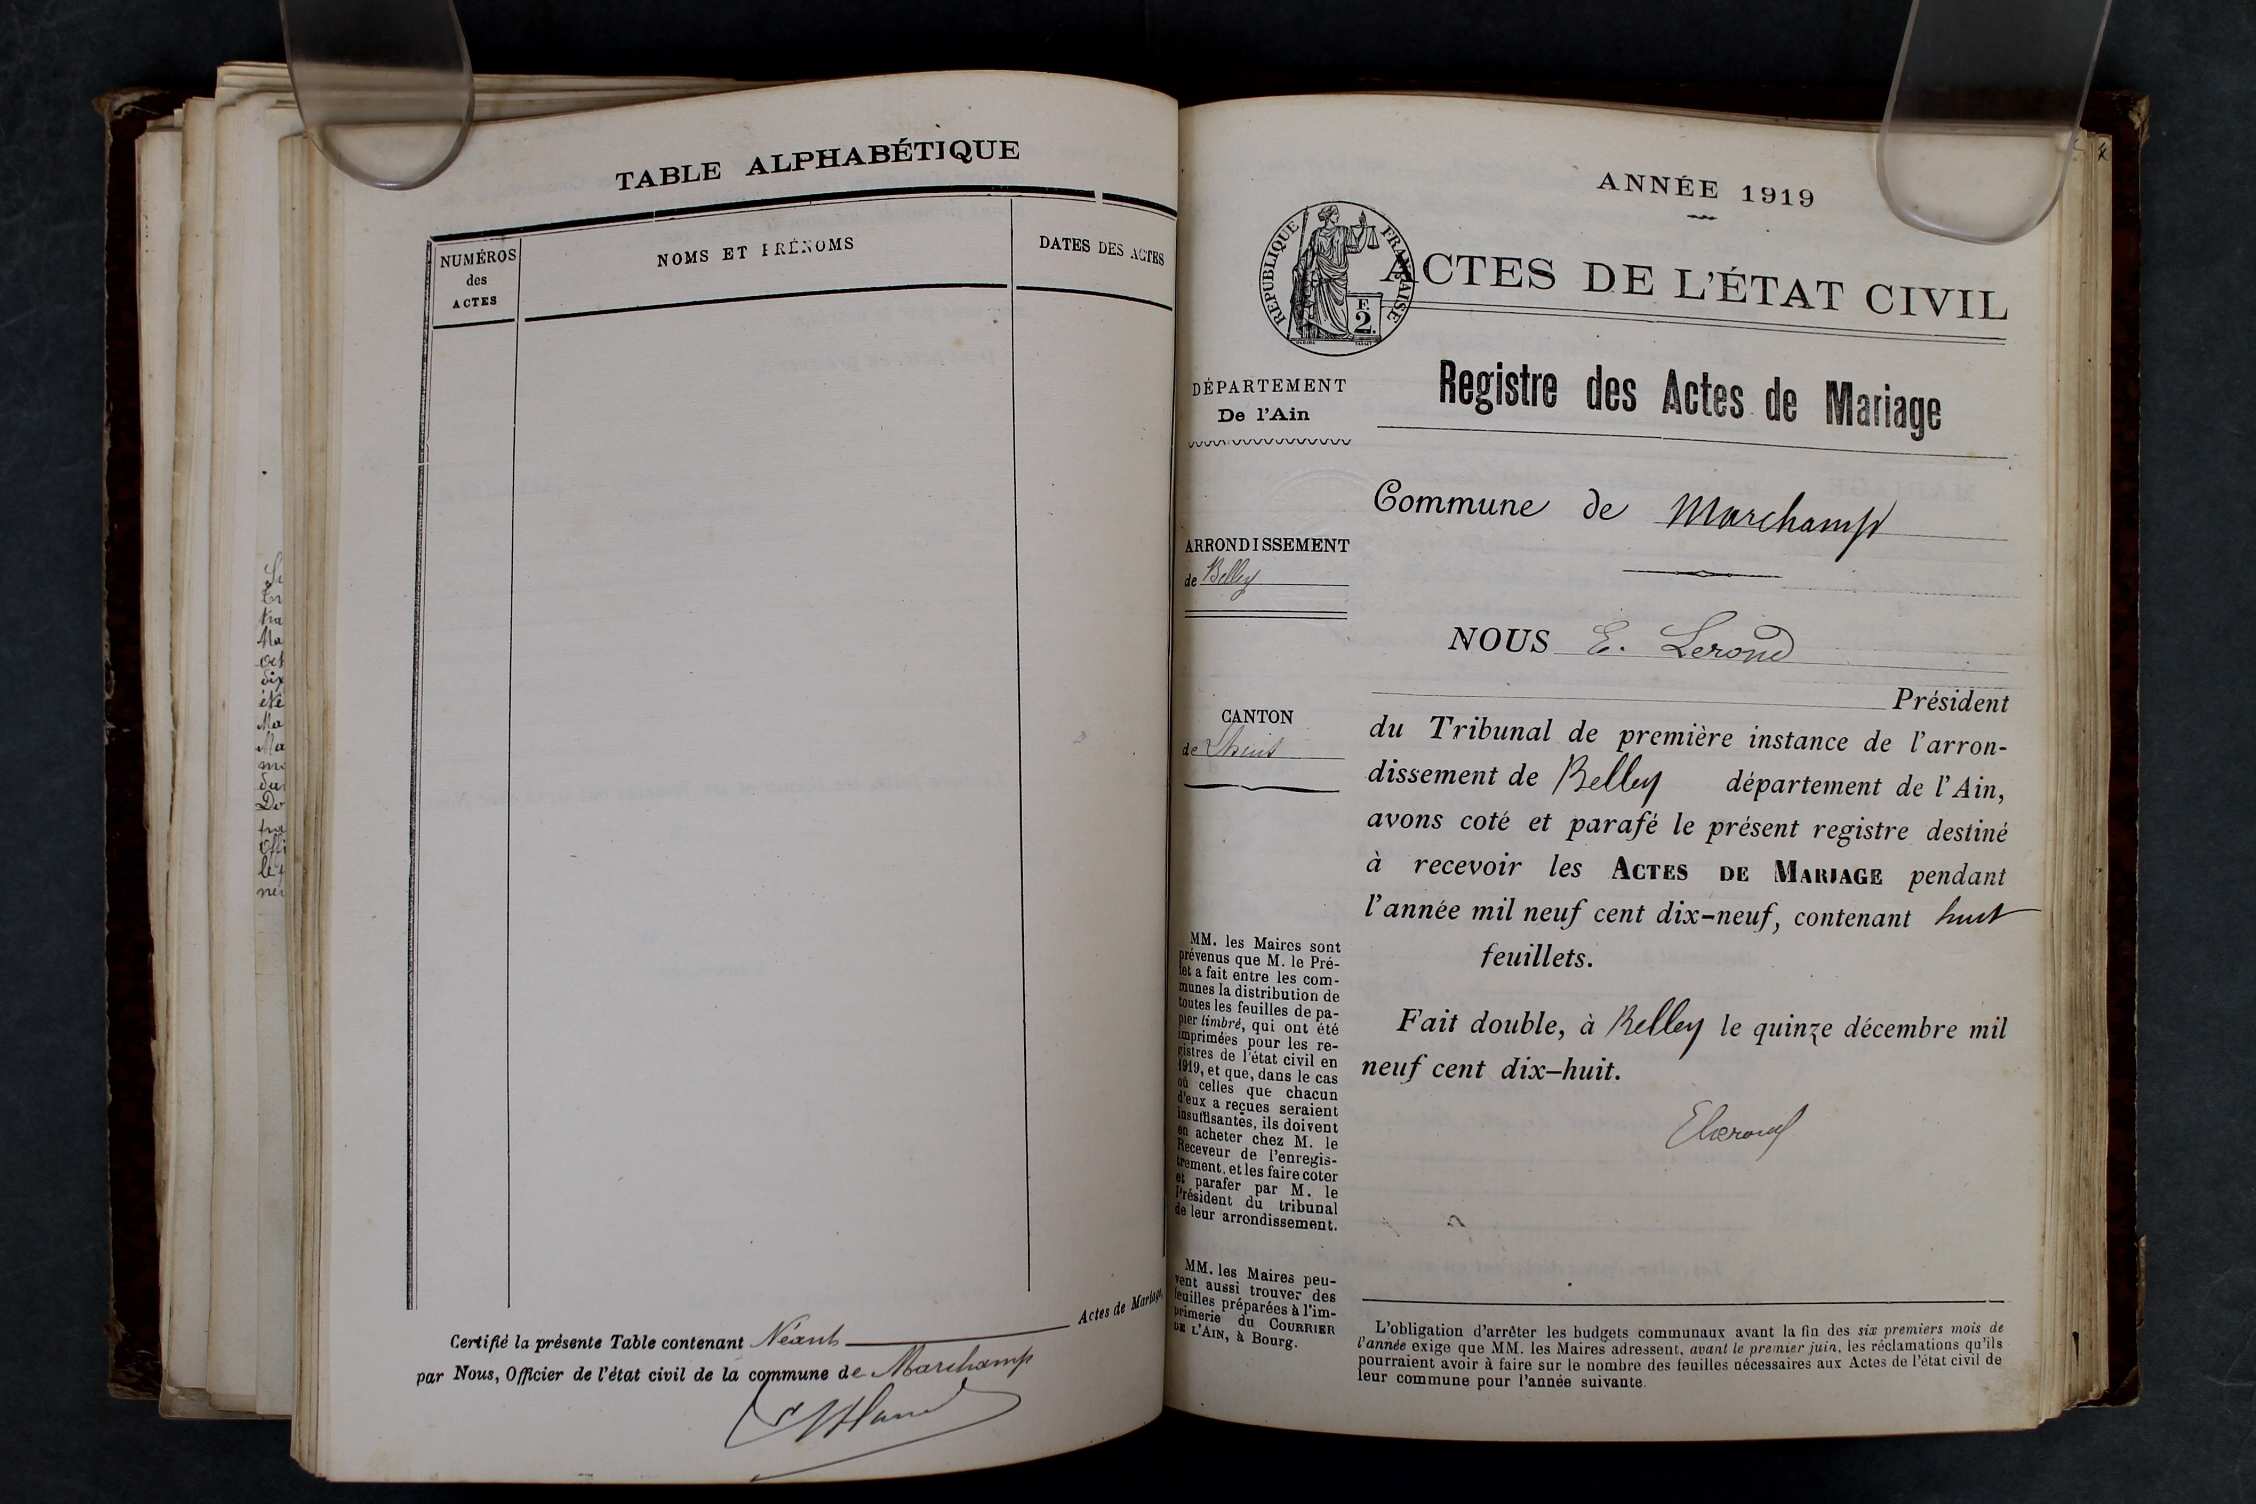 TABLE ALPHABÉTIQUE
NUMÉROS
des
ACTES
NOMS ET PRÉNOMS
DATES DES ACTES
Certifié la présente Table contenant Néant Actes de Mariage,
par Nous, Officier de l'état civil de la commune de Marchamp
ANNÉE 1919
RÉPUBLIQUE FRANÇAISE
F.
2.
ACTES DE L'ÉTAT CIVIL
DÉPARTEMENT
De l'Ain
ARRONDISSEMENT
de Belley
CANTON
de Lhuis
MM. les Maires sont
prévenus que M. le Pré-
fet a fait entre les com-
munes la distribution de
toutes les feuilles de pa-
pier timbré, qui ont été
imprimées pour les re-
gistres de l'état civil en
1919, et que, dans le cas
où celles que chacun
d'eux a reçues seraient
insuffisantes, ils doivent
en acheter chez M. le
Receveur de l'enregis-
trement, et les faire coter
et parafer par M. le
Président du tribunal
de leur arrondissement.
MM. les Maires peu-
vent aussi trouver des
feuilles préparées à l'im-
primerie du COURRIER
DE L'AIN, à Bourg.
Registre des Actes de Mariage
Commune de Marchamp
NOUS E. Lerond
Président
du Tribunal de première instance de l'arron-
dissement de Belley département de l'Ain,
avons coté et parafé le présent registre destiné
à recevoir les ACTES DE MARIAGE pendant
l'année mil neuf cent dix-neuf, contenant huit
feuillets.
Fait double, à Belley le quinze décembre mil
neuf cent dix-huit.
ELerond
L'obligation d'arrêter les budgets communaux avant la fin des six premiers mois de
l'année exige que MM. les Maires adressent, avant le premier juin, les réclamations qu'ils
pourraient avoir à faire sur le nombre des feuilles nécessaires aux Actes de l'état civil de
leur commune pour l'année suivante.